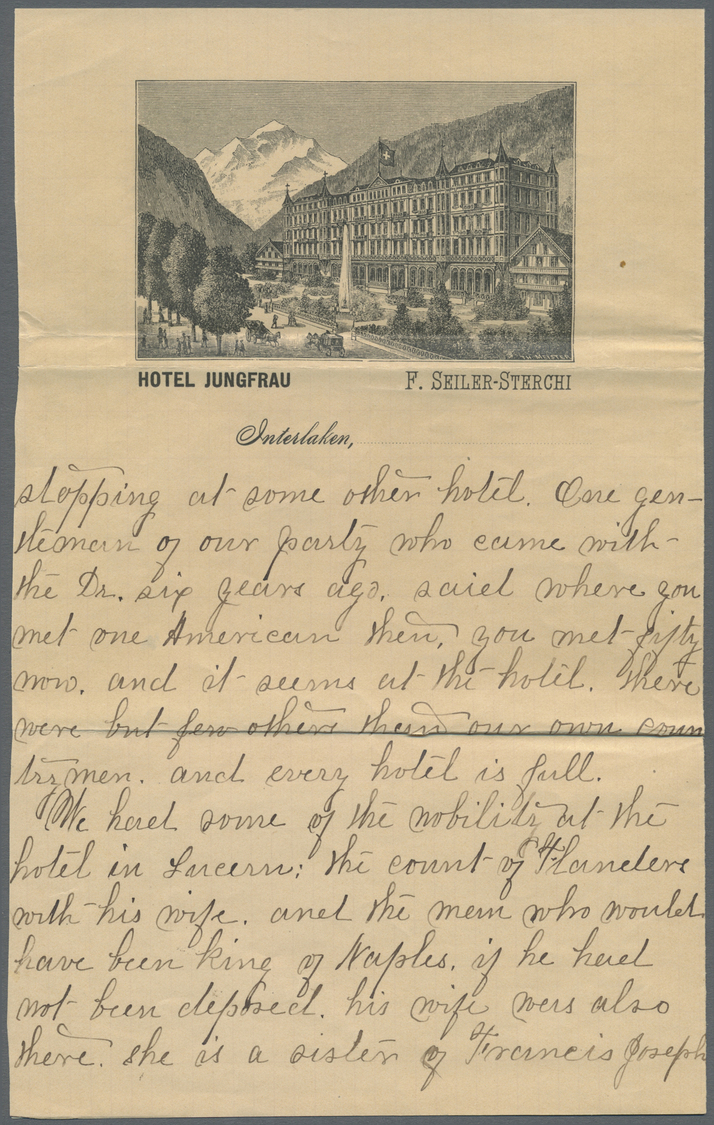 HOTEL JUNGFRAU F. SEILER-STERCHI
Interlaken,
stopping at some other hotel. One gen-
tleman of our party who came with
the Dr. six years ago, said where you
met one American then, you met fifty
now. and it seems at the hotel. There
were but few others then our own coun
trymen. and every hotel is full.
We had some of the nobility at the
hotel in Lucern; the count of Flanders
with his wife. and the man who would
have been king of Naples, if he had
not been deposed. his wife was also
there. she is a sister of Francis Joseph